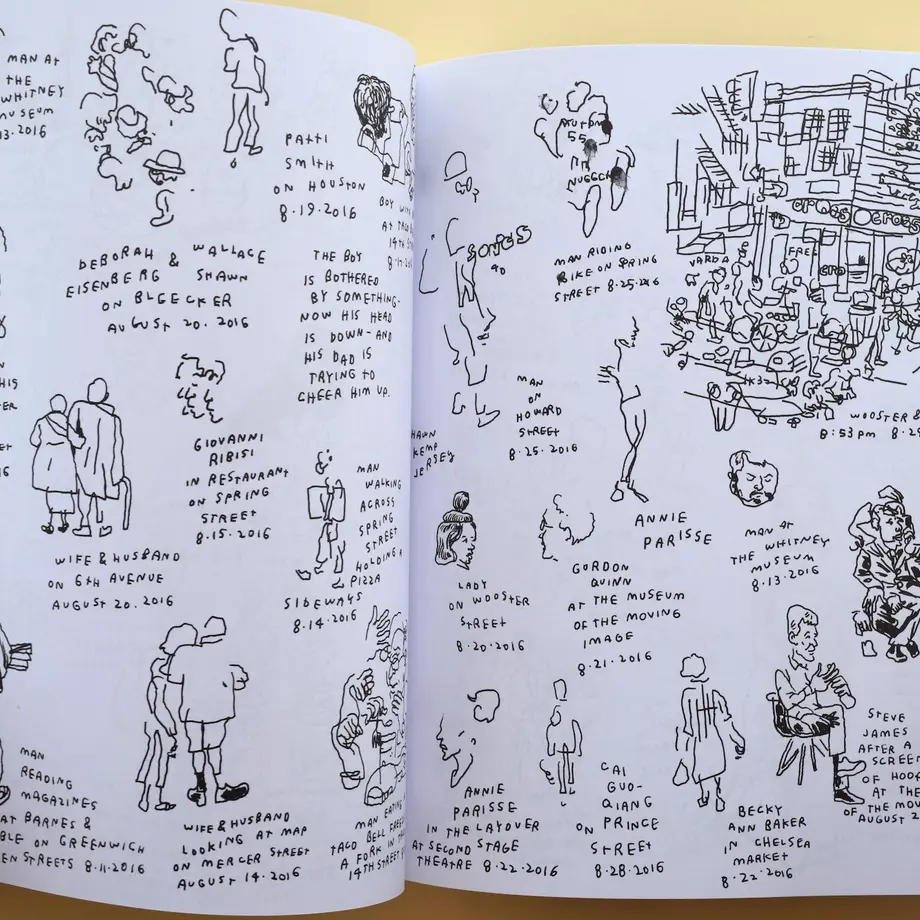 MAN AT
THE
WHITNEY
MUSEUM
13.2016
PATTI
SMITH
ON HOUSTON
8.19.2016
DEBORAH & WALLACE
EISENBERG SHAWN
ON BLEECKER
AUGUST 20.2016
THE BOY
IS BOTHERED
BY SOMETHING-
NOW HIS HEAD
IS DOWN-AND
HIS DAD IS
TRYING TO
CHEER HIM UP.
BOY
AT
14TH
GIOVANNI
RIBISI
IN RESTAURANT
ON SPRING
STREET
8.15.2016
MAN
WALKING
ACROSS
SPRING
STREET
HOLDING A
PIZZA
SIDEWAYS
8.14.2016
WIFE & HUSBAND
ON 6TH AVENUE
AUGUST 20.2016
MAN
READING
MAGAZINES
AT BARNES &
ON GREENWICH
STREETS 8.11.2016
WIFE & HUSBAND
LOOKING AT MAP
ON MERCER STREET
AUGUST 14.2016
MAN EATING
TACO BELL
A FORK IN
14TH STREET
SONGS
MAN RIDING
BIKE ON SPRING
STREET 8.25.2016
VARDA
FREE
WOOSTER &
8:53 PM
MAN
ON
HOWARD
STREET
8.25.2016
KEMP
JERSEY
ANNIE
PARISSE
MAN AT
THE WHITNEY
MUSEUM
8.13.2016
LADY
ON WOOSTER
STREET
8.20.2016
GORDON
QUINN
AT THE MUSEUM
OF THE MOVING
IMAGE
8.21.2016
ANNIE
PARISSE
IN THE LAYOVER
AT SECOND STAGE
THEATRE 8.22.2016
CAI
GUO-
QIANG
ON PRINCE
STREET
8.28.2016
BECKY
ANN BAKER
IN CHELSEA
MARKET
8.22.2016
STEVE
JAMES
AFTER A
SCREEN
OF HOOP
AT THE
OF THE MO
AUGUST 2